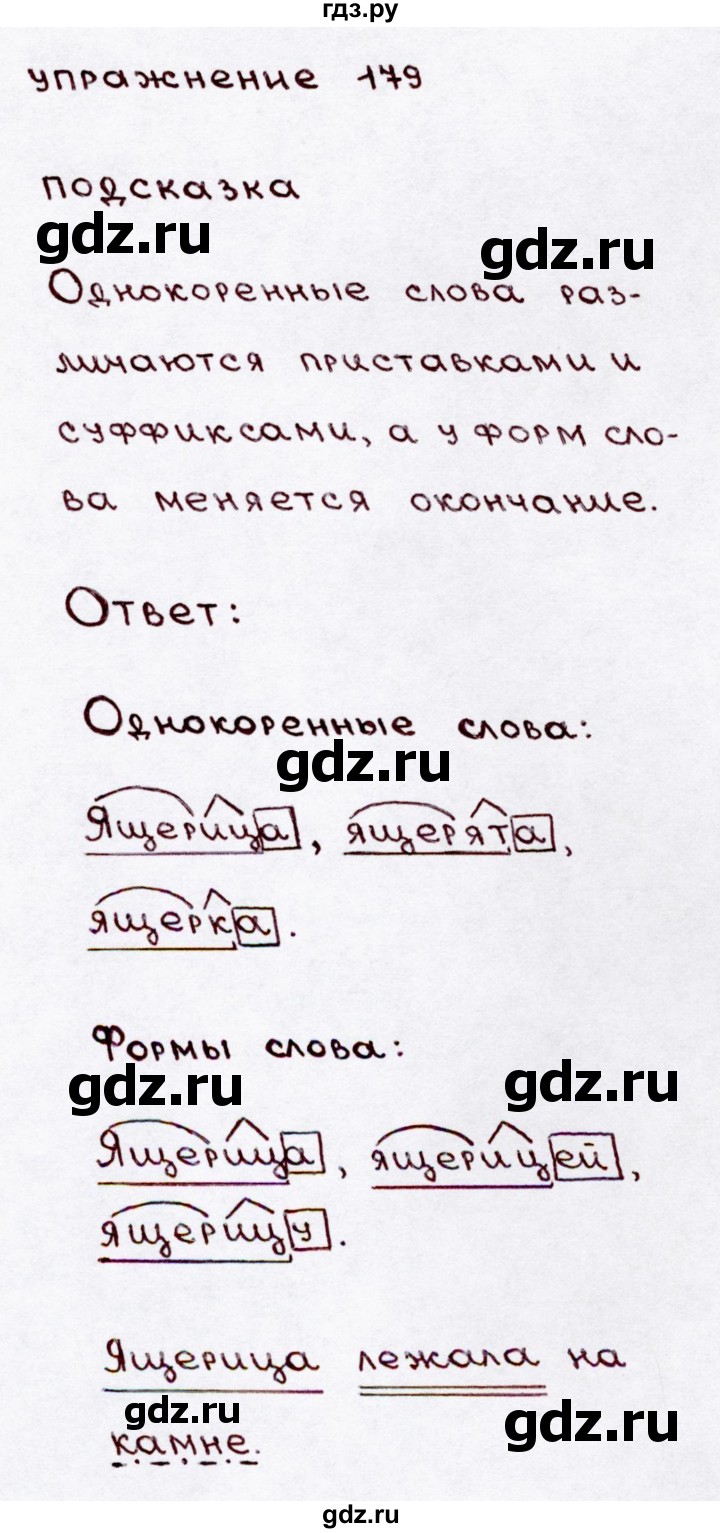 гдз.ру
упражнение 179
подсказка
gdz.ru
gdz.ru
Однокоренные слова раз-
личаются приставками и
суффиксами, а у форм сло-
ва меняется окончание.
Ответ:
Однокоренные слова:
gdz.ru
Ящерица, ящерята,
ящерка.
Формы слова:
gdz.ru
gdz.ru
Ящерица, ящерицей,
ящерицу.
Ящерица лежала на
gdz.ru
gdz.ru
камне.
gdz.ru